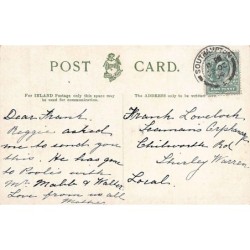 POST CARD.
For INLAND Postage only this space may be used for communication.
The ADDRESS only to be written here.
SOUTHAMPTON
HALFPENNY
Dear Frank,
Reggie asked
me to send you
this. He has gone
to Poole with
Mr. Mabb & Walter.
Love from us all
Mother
Frank Lovelock
Seamans Orphanage
Chilworth Rd
Shirley Warren
Local.